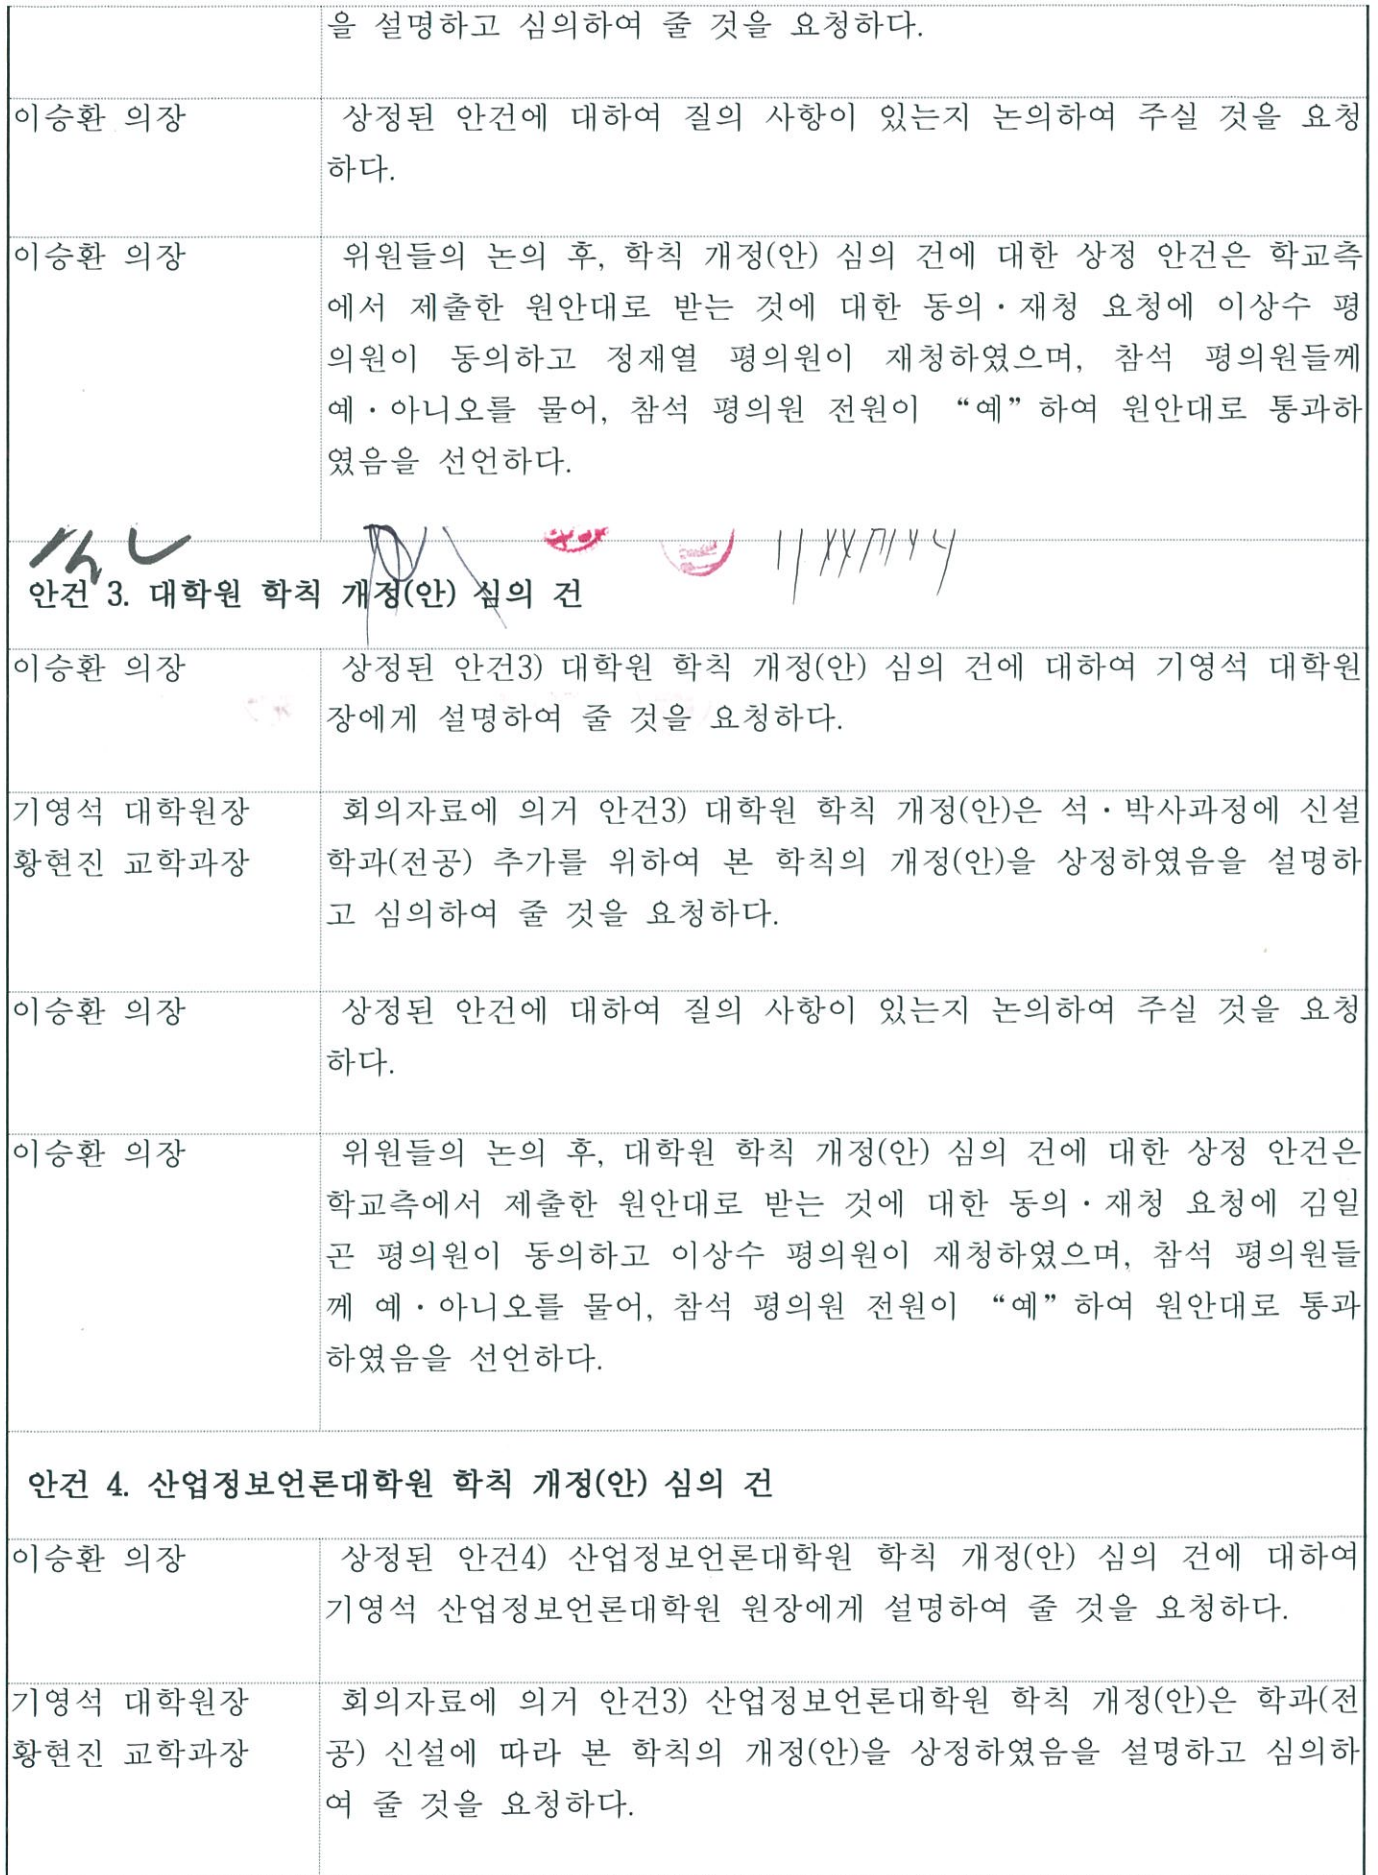 을 설명하고 심의하여 줄 것을 요청하다.
이승환 의장 상정된 안건에 대하여 질의 사항이 있는지 논의하여 주실 것을 요청
하다.
이승환 의장 위원들의 논의 후, 학칙 개정(안) 심의 건에 대한 상정 안건은 학교측
에서 제출한 원안대로 받는 것에 대한 동의・재청 요청에 이상수 평
의원이 동의하고 정재열 평의원이 재청하였으며, 참석 평의원들께
예・아니오를 물어, 참석 평의원 전원이 “예” 하여 원안대로 통과하
였음을 선언하다.
안건 3. 대학원 학칙 개정(안) 심의 건
이승환 의장 상정된 안건3) 대학원 학칙 개정(안) 심의 건에 대하여 기영석 대학원
장에게 설명하여 줄 것을 요청하다.
기영석 대학원장 회의자료에 의거 안건3) 대학원 학칙 개정(안)은 석・박사과정에 신설
황현진 교학과장 학과(전공) 추가를 위하여 본 학칙의 개정(안)을 상정하였음을 설명하
고 심의하여 줄 것을 요청하다.
이승환 의장 상정된 안건에 대하여 질의 사항이 있는지 논의하여 주실 것을 요청
하다.
이승환 의장 위원들의 논의 후, 대학원 학칙 개정(안) 심의 건에 대한 상정 안건은
학교측에서 제출한 원안대로 받는 것에 대한 동의・재청 요청에 김일
곤 평의원이 동의하고 이상수 평의원이 재청하였으며, 참석 평의원들
께 예・아니오를 물어, 참석 평의원 전원이 “예” 하여 원안대로 통과
하였음을 선언하다.
안건 4. 산업정보언론대학원 학칙 개정(안) 심의 건
이승환 의장 상정된 안건4) 산업정보언론대학원 학칙 개정(안) 심의 건에 대하여
기영석 산업정보언론대학원 원장에게 설명하여 줄 것을 요청하다.
기영석 대학원장 회의자료에 의거 안건3) 산업정보언론대학원 학칙 개정(안)은 학과(전
황현진 교학과장 공) 신설에 따라 본 학칙의 개정(안)을 상정하였음을 설명하고 심의하
여 줄 것을 요청하다.